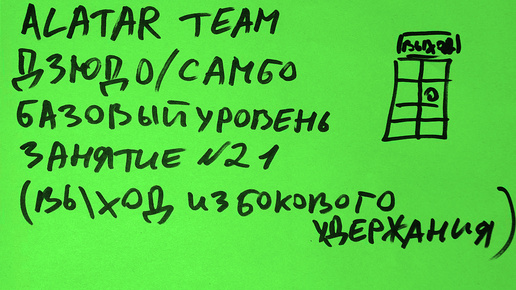 ALATAR TEAM
ДЗЮДО/САМБО
БАЗОВЫЙ УРОВЕНЬ
ЗАНЯТИЕ №21
(ВЫХОД ИЗ БОКОВОГО
УДЕРЖАНИЯ)
ВЫХОД